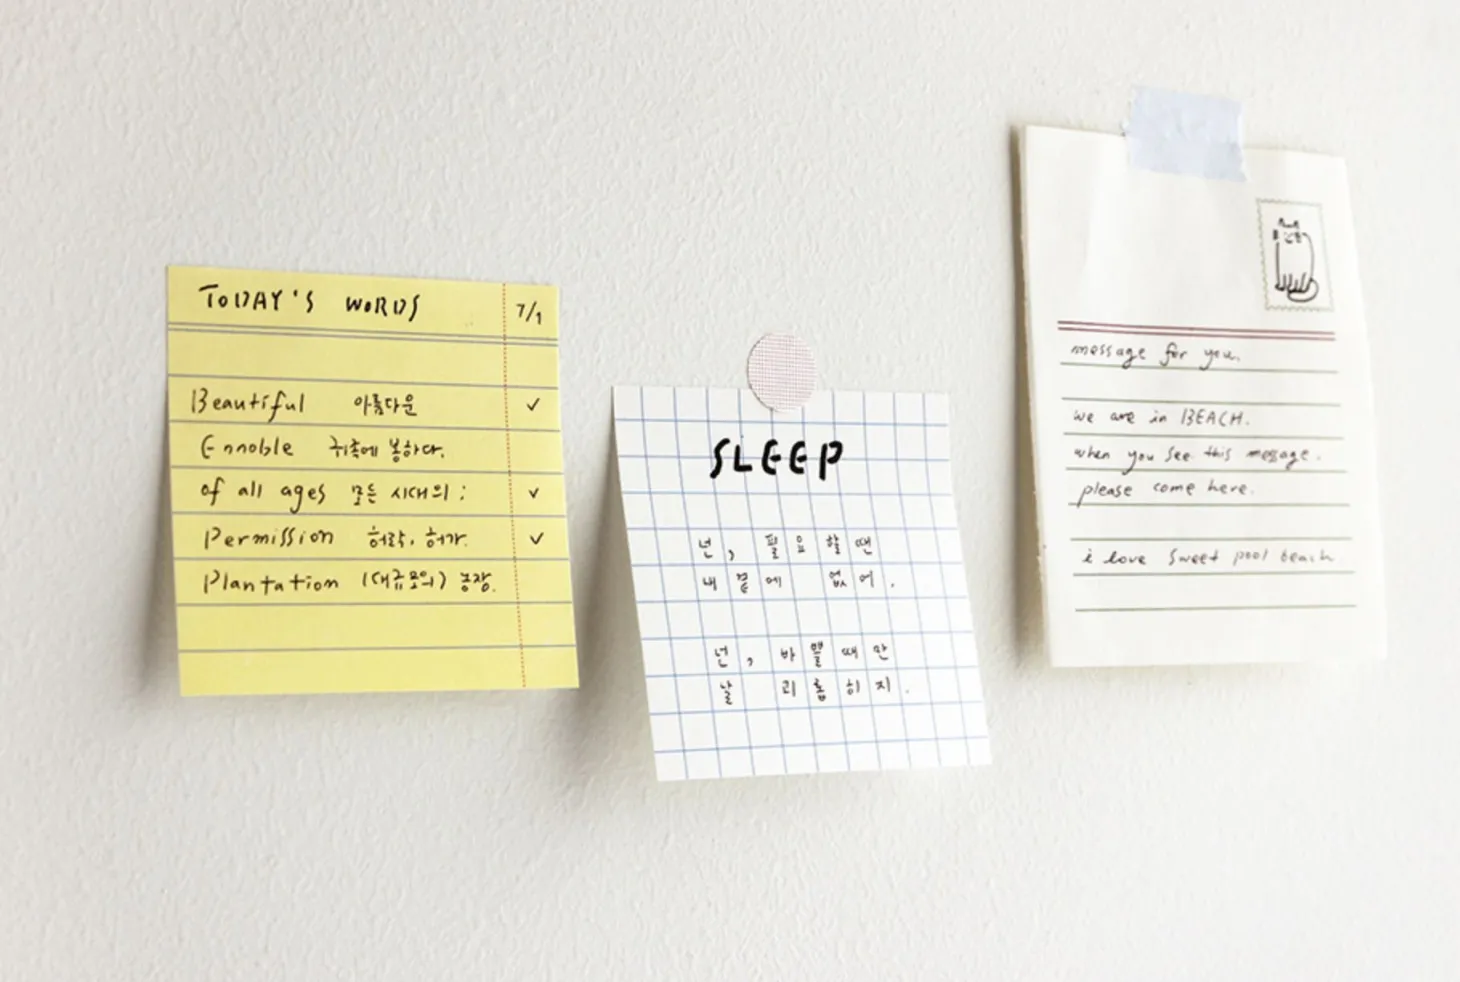 TODAY'S WORDS 7/1
Beautiful 아름다운 ✓
Ennoble 귀족에 봉하다.
of all ages 모든 시대의; ✓
Permission 허락, 허가. ✓
Plantation (대규모의) 농장.
SLEEP
넌, 필요할땐
내 곁에 없어.
넌, 바쁠때만
날 괴롭히지.
message for you.
we are in BEACH.
when you see this message.
please come here.
i love sweet pool beach